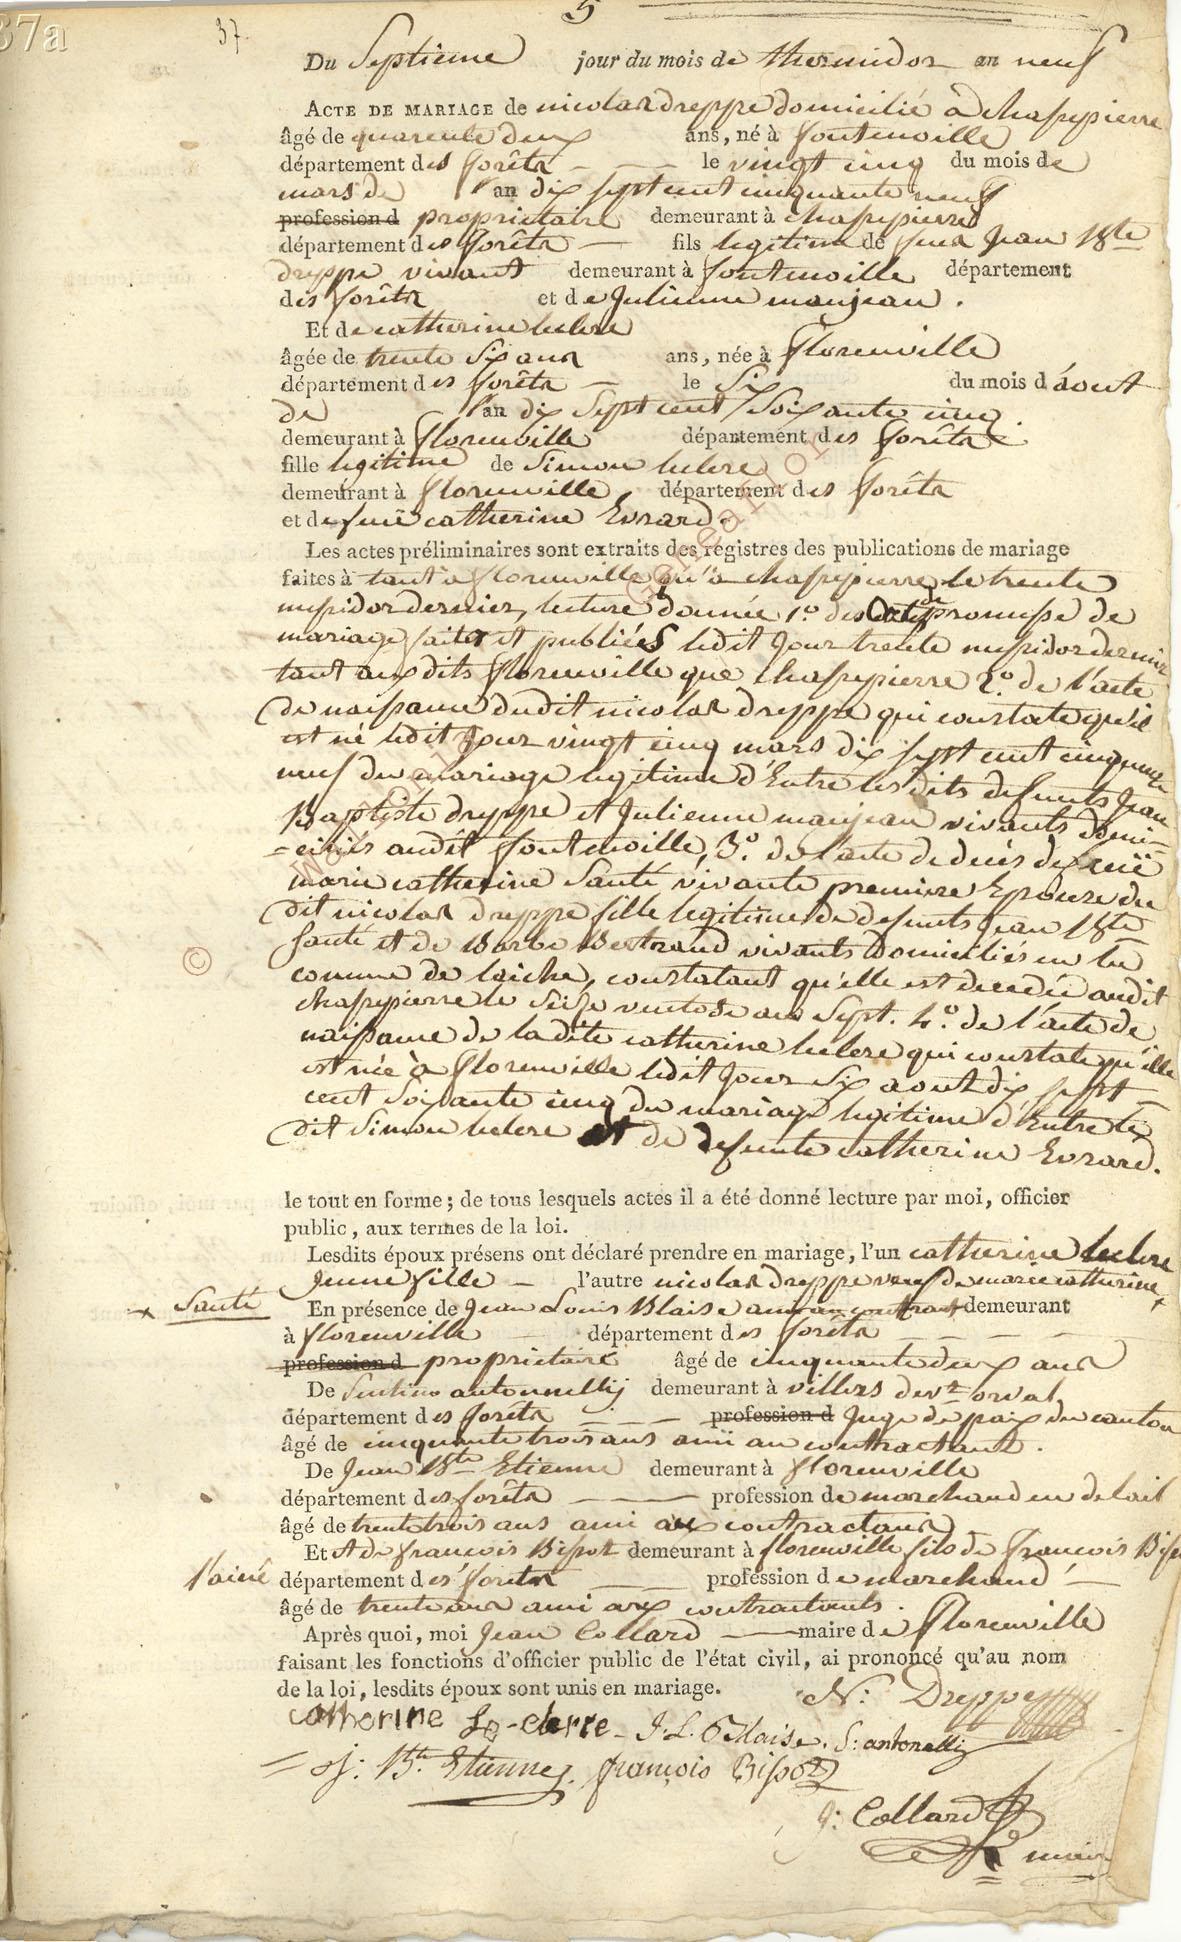 37a
37
5
Du Septieme jour du mois de thermidor an neuf
ACTE DE MARIAGE de nicolas dreppe domicilié à chassepierre
âgé de quarente deux ans, né à fontenoille
département des forêts le vingt cinq du mois de
mars de l'an dix sept cent cinquante neuf
profession d proprietaire demeurant à chassepierre
département des forêts fils legitime de feux Jean Bte
dreppe vivant demeurant à fontenoille département
des forêts et de Julienne manjean.
Et de catherine leclere
âgée de trente Six ans ans, née à florenville
département des forêts le Six du mois d'àout
de l'an dix Sept cent Soixante cinq
demeurant à florenville département des forêts
fille legitime de Simon leclere
demeurant à florenville, département des forêts
et de feue catherine Evrard.
Les actes préliminaires sont extraits des registres des publications de mariage
faites à tant à florenville qu'à chassepierre le trente
messidor dernier, lecture donnée 1.o des actes de promesse de
mariage faites et publiées ledit Jour trente messidor dernier
tant aux dits florenville que chassepierre 2.o de l'acte
de naissance dudit nicolas dreppe qui constate qu'il
est né ledit Jour vingt cinq mars dix sept cent cinquante
neuf du mariage legitime d'Entre les dits defunts Jean
Baptiste dreppe et Julienne manjean vivants domi-
-ciliés audit fontenoille, 3.o de l'acte de décès de
marie catherine Santé vivante premiere Epouse du
dit nicolas dreppe fille legitime de defunts Jean Bte
Santé et de Barbe Bertrand vivants domiciliés en la
comune de laiche, constatant qu'elle est decedée audit
chassepierre le Seize ventose an Sept. 4.o de l'acte de
naissance de la dite catherine leclere qui constate qu'elle
est née à florenville ledit Jour Six aout dix sept
cent Soixante cinq du mariage legitime d'Entre le
dit Simon leclere et de defunte catherine Evrard.
le tout en forme; de tous lesquels actes il a été donné lecture par moi, officier
public, aux termes de la loi.
Lesdits époux présens ont déclaré prendre en mariage, l'un catherine leclere
Jeune fille l'autre nicolas dreppe veuf de marie catherine
x Santé
En présence de Jean Louis Blaise ami au contract demeurant
à florenville département des forêts
profession d proprietaire âgé de cinquante deux ans
De antonnellij demeurant à villers devt orval
département des forêts profession d Juge de paix du canton
âgé de cinquante trois ans ami au contractant.
De Jean Bte Etienne demeurant à florenville
département des forêts profession de marchand en detail
âgé de trente trois ans ami aux contractans
Et de françois Bissot demeurant à florenville fils de françois
l'ainé
département des forêts profession de marchand
âgé de trente ans ami aux contractants.
Après quoi, moi Jean Collard maire de florenville
faisant les fonctions d'officier public de l'état civil, ai prononcé qu'au nom
de la loi, lesdits époux sont unis en mariage.
N: Dreppe
catherine Le-clerre J. L. Blaise. S: antonellij
J: Bte. Etienne. françois Bissot
J: Collard
maire